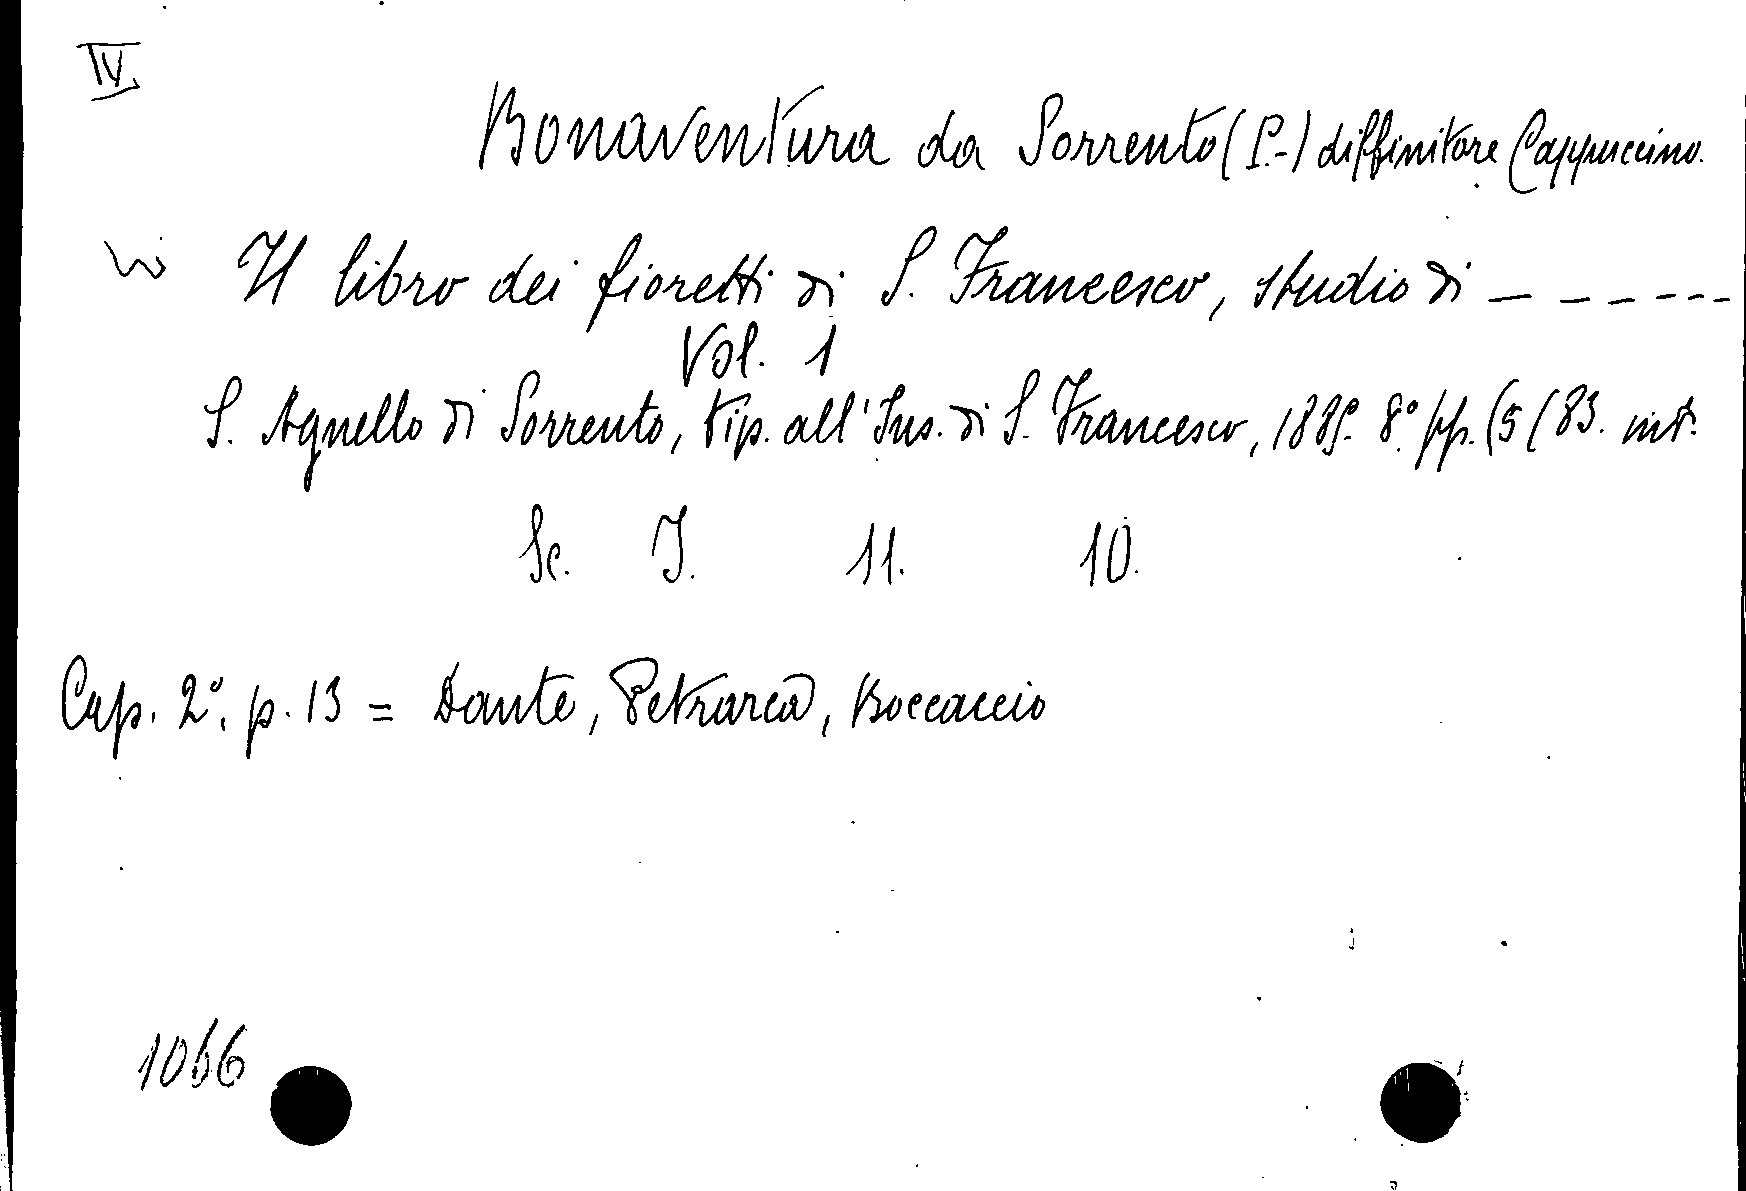 IV
Bonaventura da Sorrento (P.-) diffinitore Cappuccino.
Il libro dei fioretti di S. Francesco, studio di – – – – – –
Vol. 1
S. Agnello di Sorrento, tip. all'Ins. di S. Francesco, 8.° pp. (5 (83. int.
Sc. I. 11. 10.
Cap. 2°. p. 13 = Dante, Petrarca, Boccaccio
1066